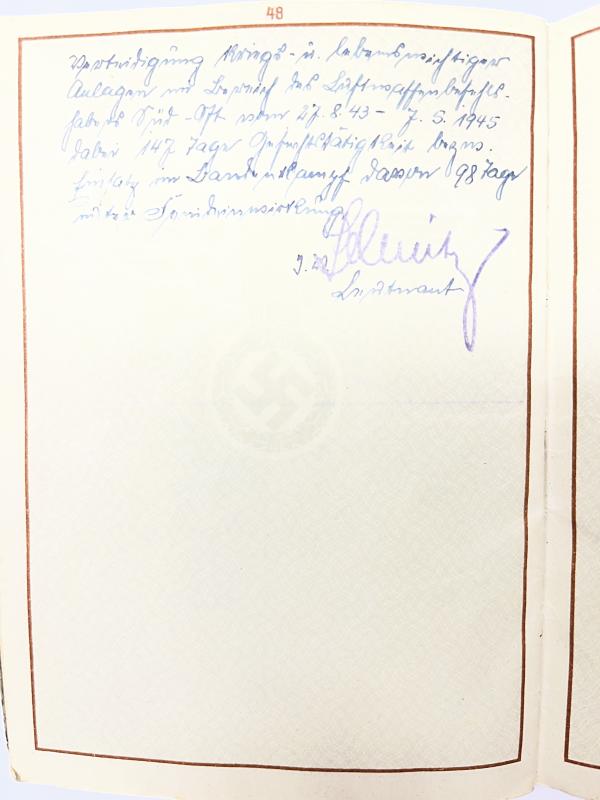 48
Verteidigung kriegs- u. lebenswichtiger
Anlagen im Bereich des Luftwaffenbefehls-
habers Süd-Ost vom 27.8.43 - 7.5.1945
dabei 147 Tage Gefechtstätigkeit bezw.
Einsatz im Bandenkampf davon 98 Tage
mit Feindeinwirkung
Leutnant